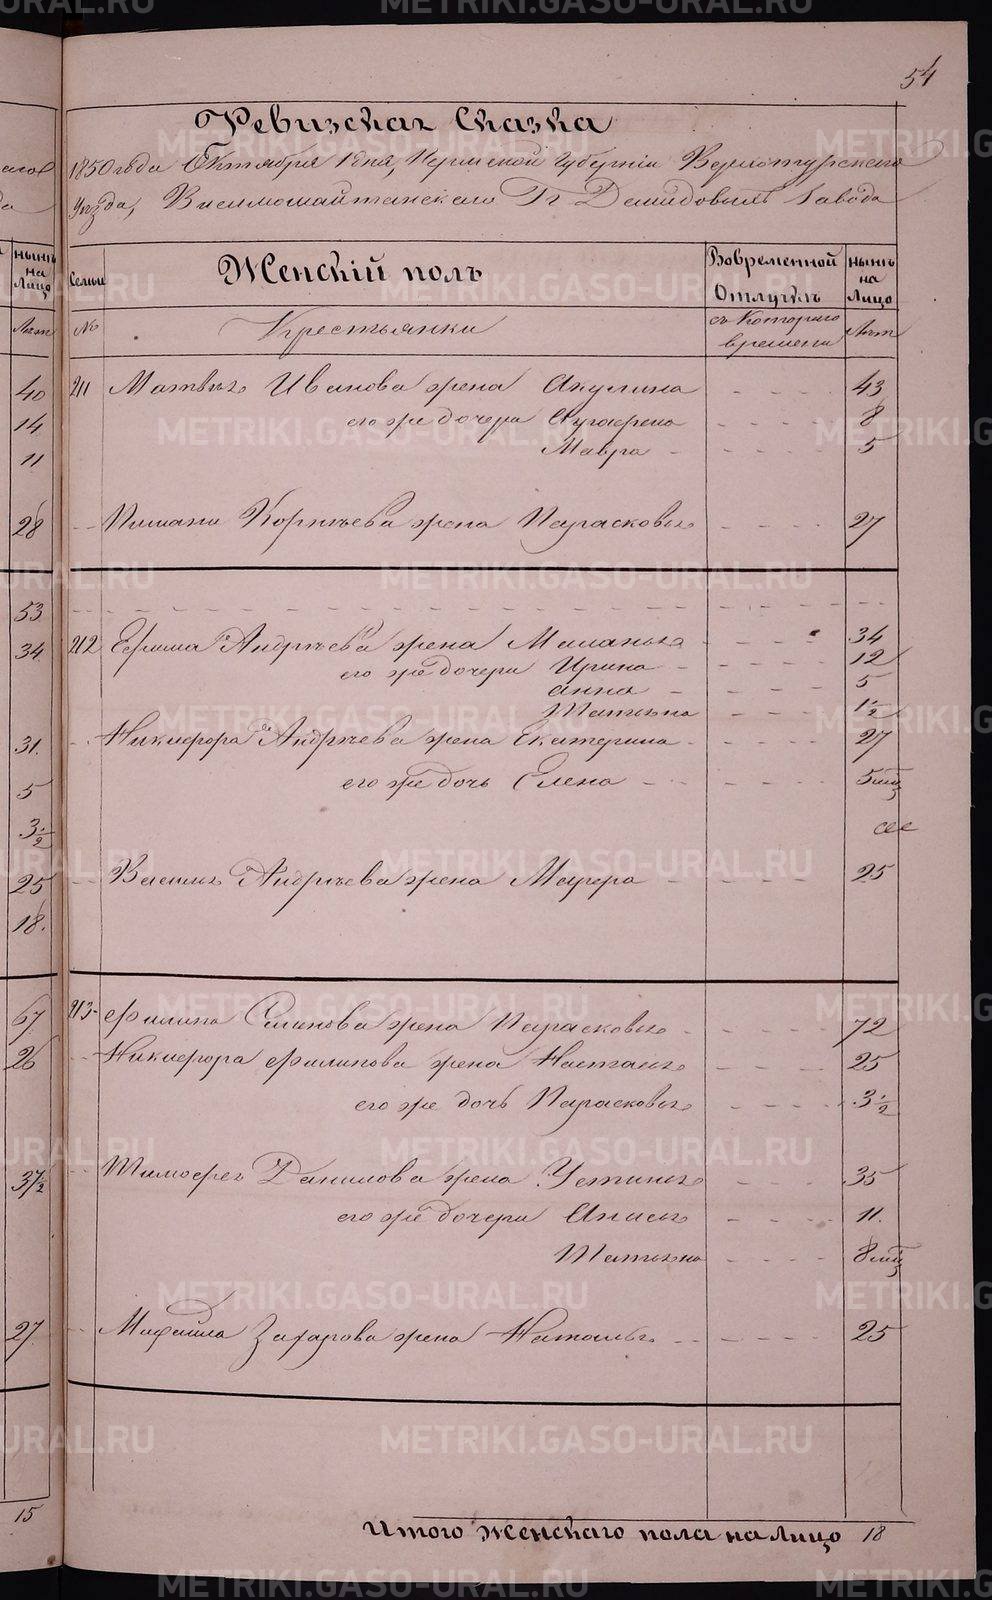 54
Ревизская Сказка
1850 года Октября 1 дня, Пермской Губернии Верхотурского
Уезда, Висимошайтанского Гг Демидовыхъ Завода
Семьи
Женскій полъ
Вовременной Отлучкѣ
нынѣ на Лицо
№
Крестьянки
съ Котораго времени
Лѣт
211 Матвѣя Иванова жена Акулина - - - - 43
его же дочери Аграфена - - - - 8
Мавра - - - - 5
Корнѣева жена Парасковья - - - - 27
212 Ефима Андрѣева жена Маланья - - - - 34
его же дочери Ирина - - - - 12
Анна - - - - 5
Татьяна - - - - 1 1/2
Никифора Андрѣева жена Екатерина - - - - 27
его же дочь Елена - - - - 5 мѣц
25 Василья Андрѣева жена Марфа - - - - 25
213 Филипа Семенова жена Парасковья - - - - 72
Никифора Филипова жена Наталья - - - - 25
его же дочь Парасковья - - - - 3 1/2
Тимофея Данилова жена Устинья - - - - 35
его же дочери Анисья - - - - 11
Татьяна - - - - 8 мѣц
Михайла Захарова жена Наталья - - - - 25
Итого Женскаго пола на Лицо 18
нынѣ на Лицо
Лѣт
40
14
11
28
53
34
31
5
3 1/2
25
18
67
26
37 1/2
27
15
METRIKI.GASO-URAL.RU